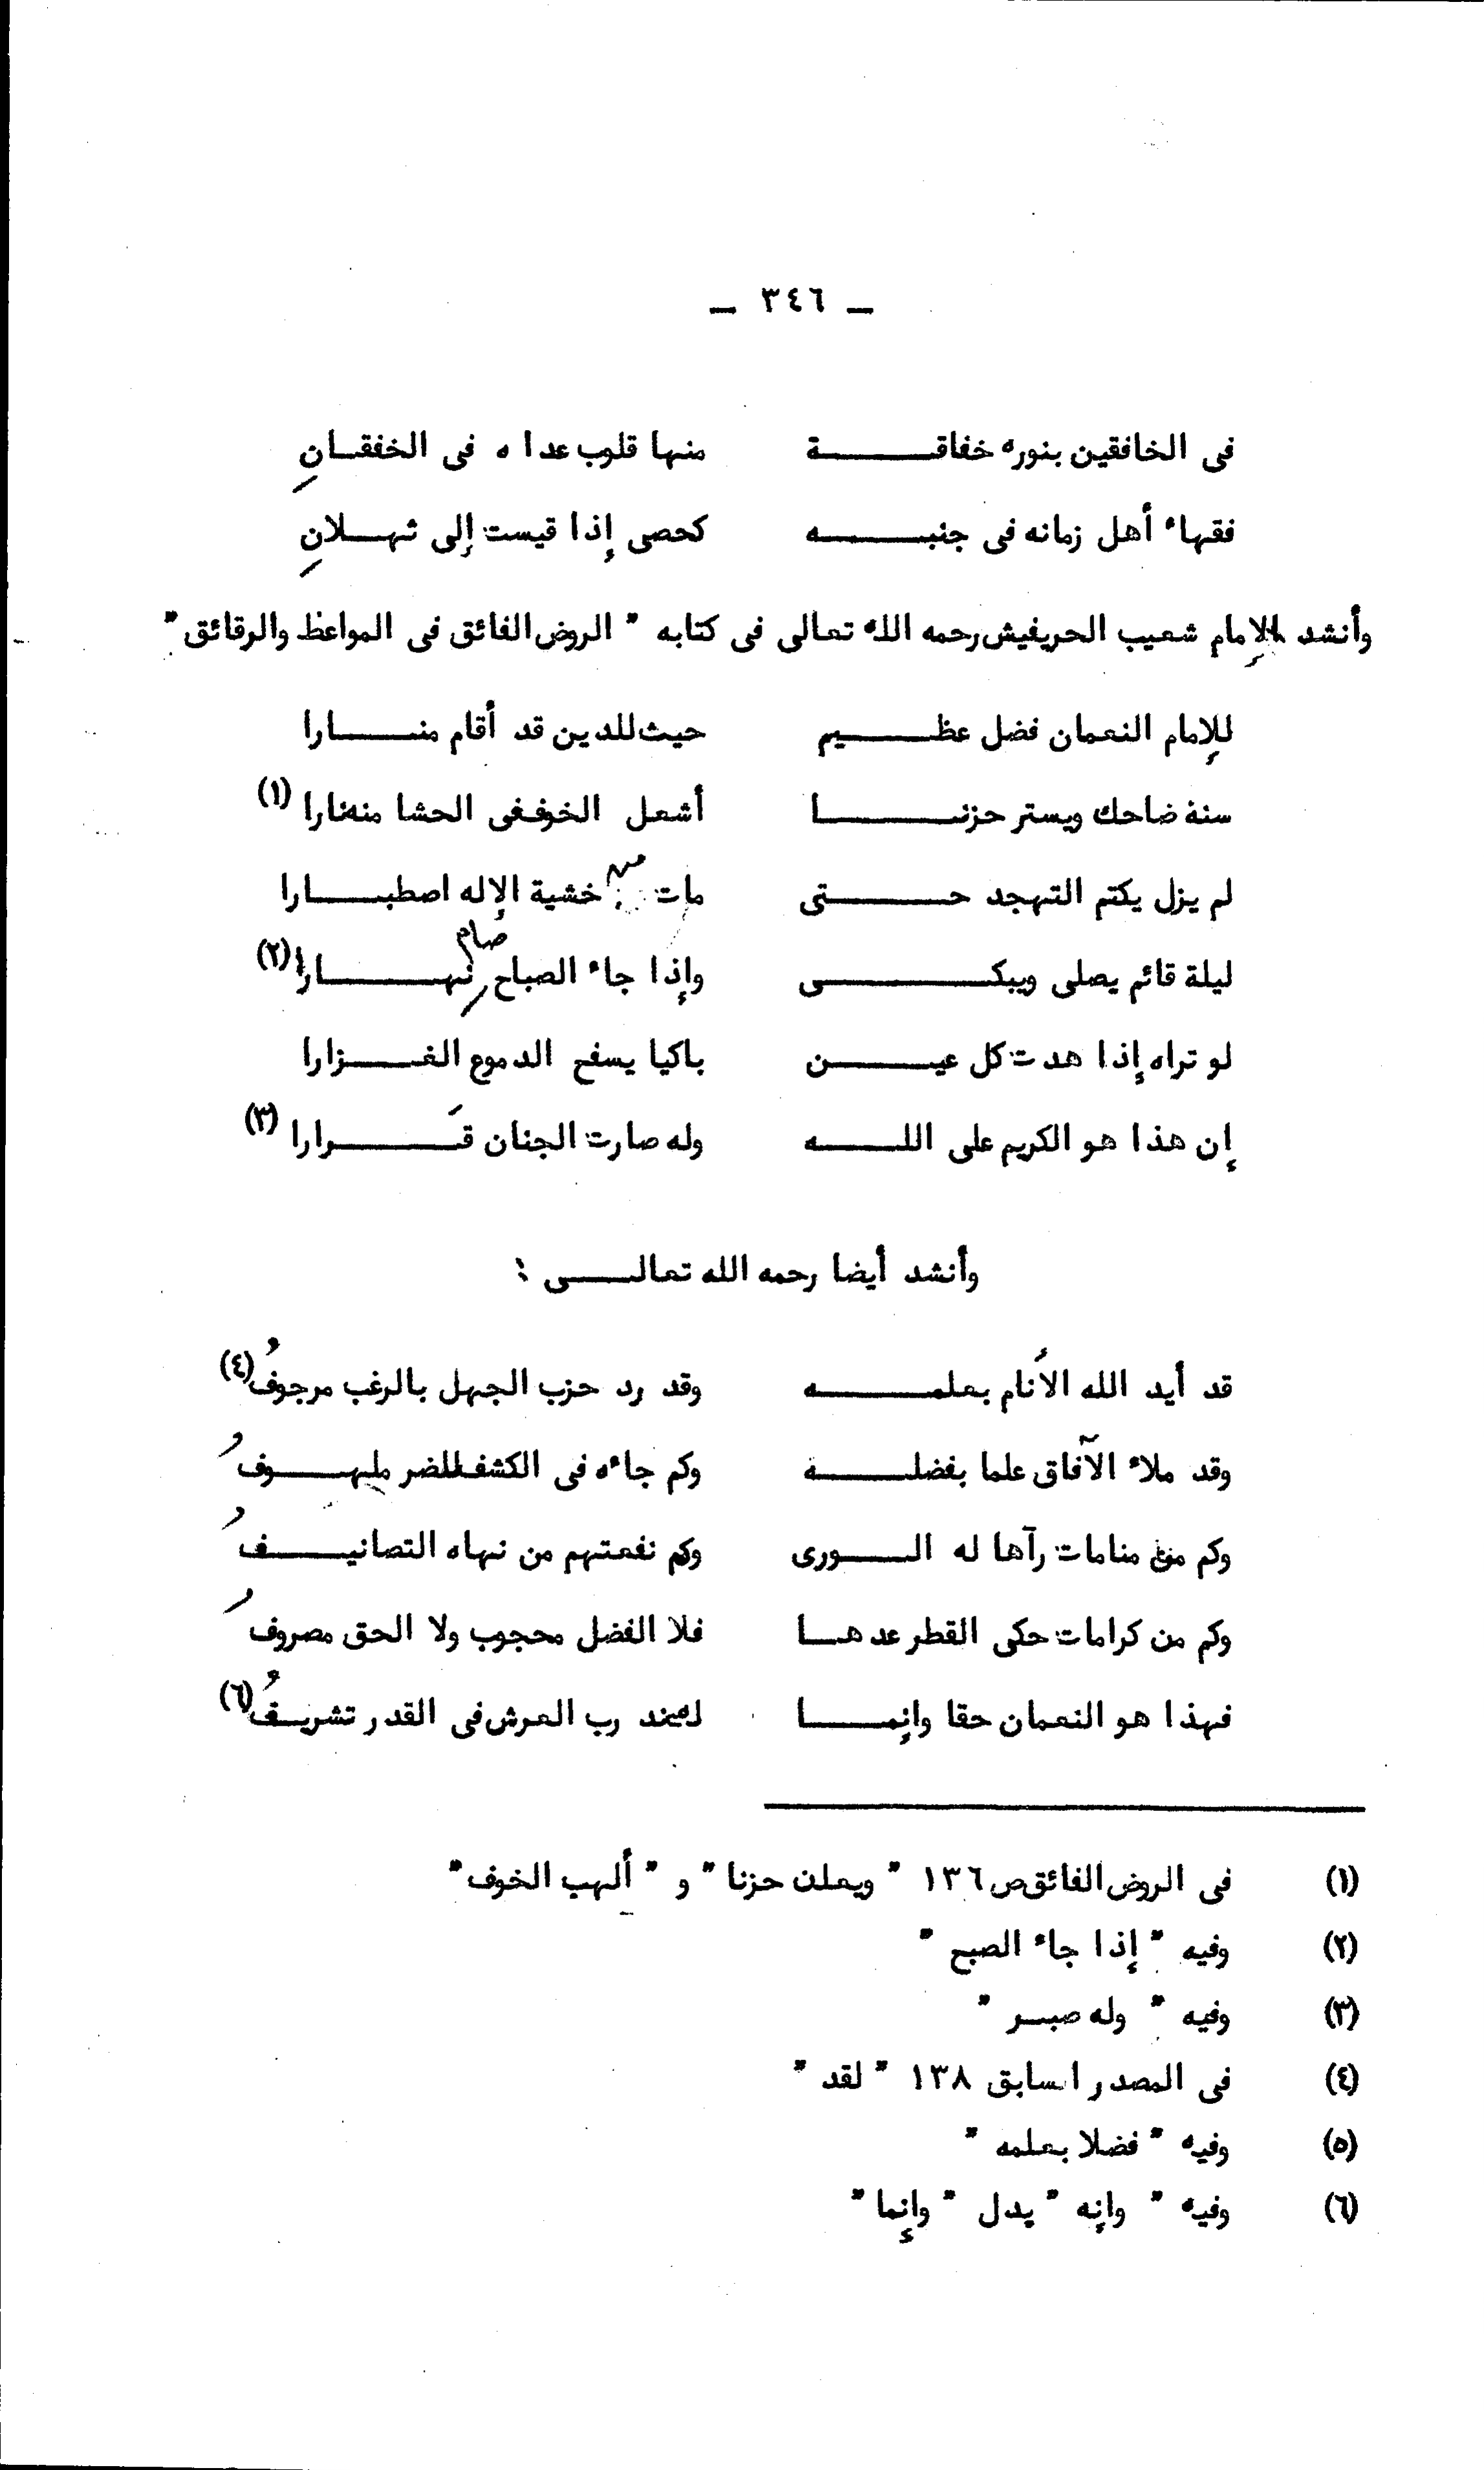 — ٣٤٦ —
فى الخافقين بنوره خفاقة منها قلوب عداه فى الخفقانِ
فقهاء أهل زمانه فى جنبه كحصى إذا قيست إلى ثهلانِ
وأنشد الإمام شعيب الحريفيش رحمه الله تعالى فى كتابه " الروض الفائق فى المواعظ والرقائق "
للإمام النعمان فضل عظيم حيث للدين قد أقام منارا
سنة ضاحك ويستر حزنا أشعل الخوف فى الحشا منه نارا (١)
لم يزل يكتم التهجد حتى مات من خشية الإله اصطبارا
ليلة قائم يصلى ويبكى وإذا جاء الصباح صام نهارا (٢)
لو تراه إذا هدت كل عين باكيا يسفح الدموع الغزارا
إن هذا هو الكريم على الله وله صارت الجنان قَرارا (٣)
وأنشد أيضا رحمه الله تعالى :
قد أيد الله الأنام بعلمه وقد رد حزب الجهل بالرغب مرجوفُ (٤)
وقد ملاء الآفاق علما بفضلة وكم جاءه فى الكشف للضر ملهوفُ
وكم من منامات رآها له الورى وكم نفعتهم من نهاه التصانيفُ
وكم من كرامات حكى القطر عدها فلا الفضل محجوب ولا الحق مصروفُ
فهذا هو النعمان حقا وإنما له عند رب العرش فى القدر تشريفُ (٦)
(١) فى الروض الفائق ص ١٣٦ " ويعلن حزنا " و " ألهب الخوف "
(٢) وفيه " إذا جاء الصبح "
(٣) وفيه " وله صبر "
(٤) فى المصدر السابق ١٣٨ " لقد "
(٥) وفيه " فضلا بعلمه "
(٦) وفيه " وإنه " بدل " وإنما "